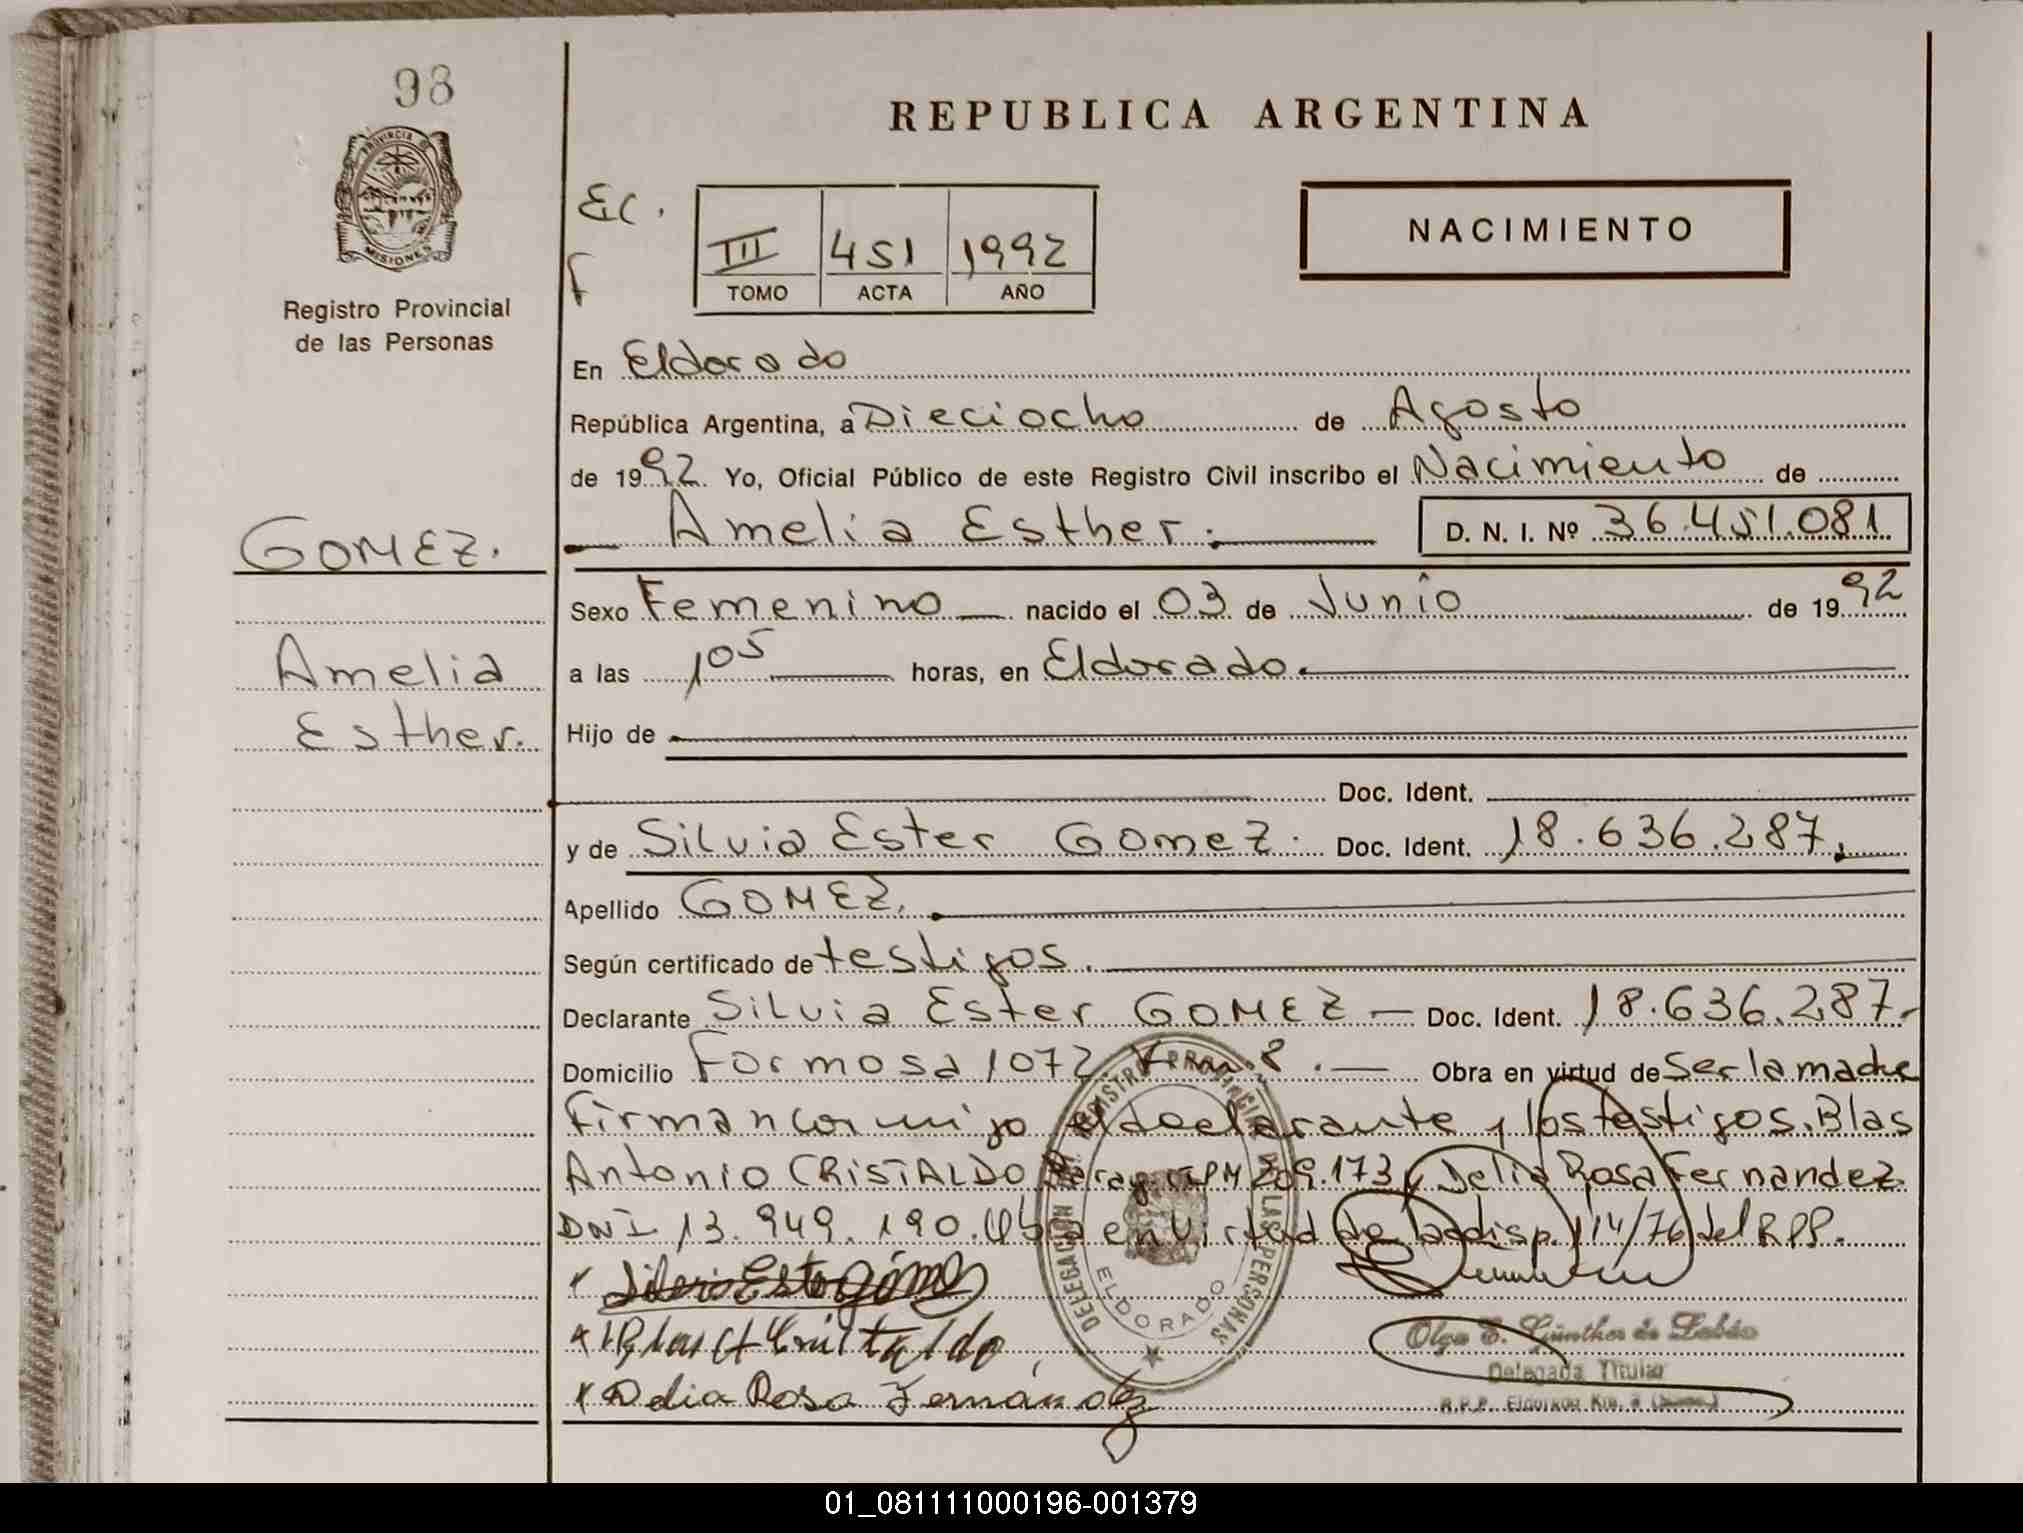 98
PROVINCIA DE
MISIONES
Registro Provincial
de las Personas
REPUBLICA ARGENTINA
EC.
F
III 451 1992
TOMO ACTA AÑO
NACIMIENTO
En Eldorado
República Argentina, a Dieciocho de Agosto
de 1992. Yo, Oficial Público de este Registro Civil inscribo el Nacimiento de
Amelia Esther. D. N. I. Nº 36.451.081
GOMEZ.
Amelia
Esther.
Sexo Femenino nacido el 03 de Junio de 1992
a las 1 05 horas, en Eldorado.
Hijo de
Doc. Ident.
y de Silvia Ester Gomez. Doc. Ident. 18.636.287.
Apellido GOMEZ.
Según certificado de testigos.
Declarante Silvia Ester GOMEZ — Doc. Ident. 18.636.287.-
Domicilio Formosa 1072 Km. 8. — Obra en virtud de ser la madre
Firman conmigo el declarante y los testigos. Blas
Antonio CRISTALDO 209.173 y Delia Rosa Fernandez
DNI 13.949.190. Obra en virtud de la disp. 114/76 del RPP.
Silvia Ester Gómez
Blas A Cristaldo
Delia Rosa Fernández
DELEGACION REGISTRO PROVINCIAL DE LAS PERSONAS
ELDORADO
Olga E. Günther de
Delegada Titular
R.P.P. Eldorado Km.
01_081111000196-001379